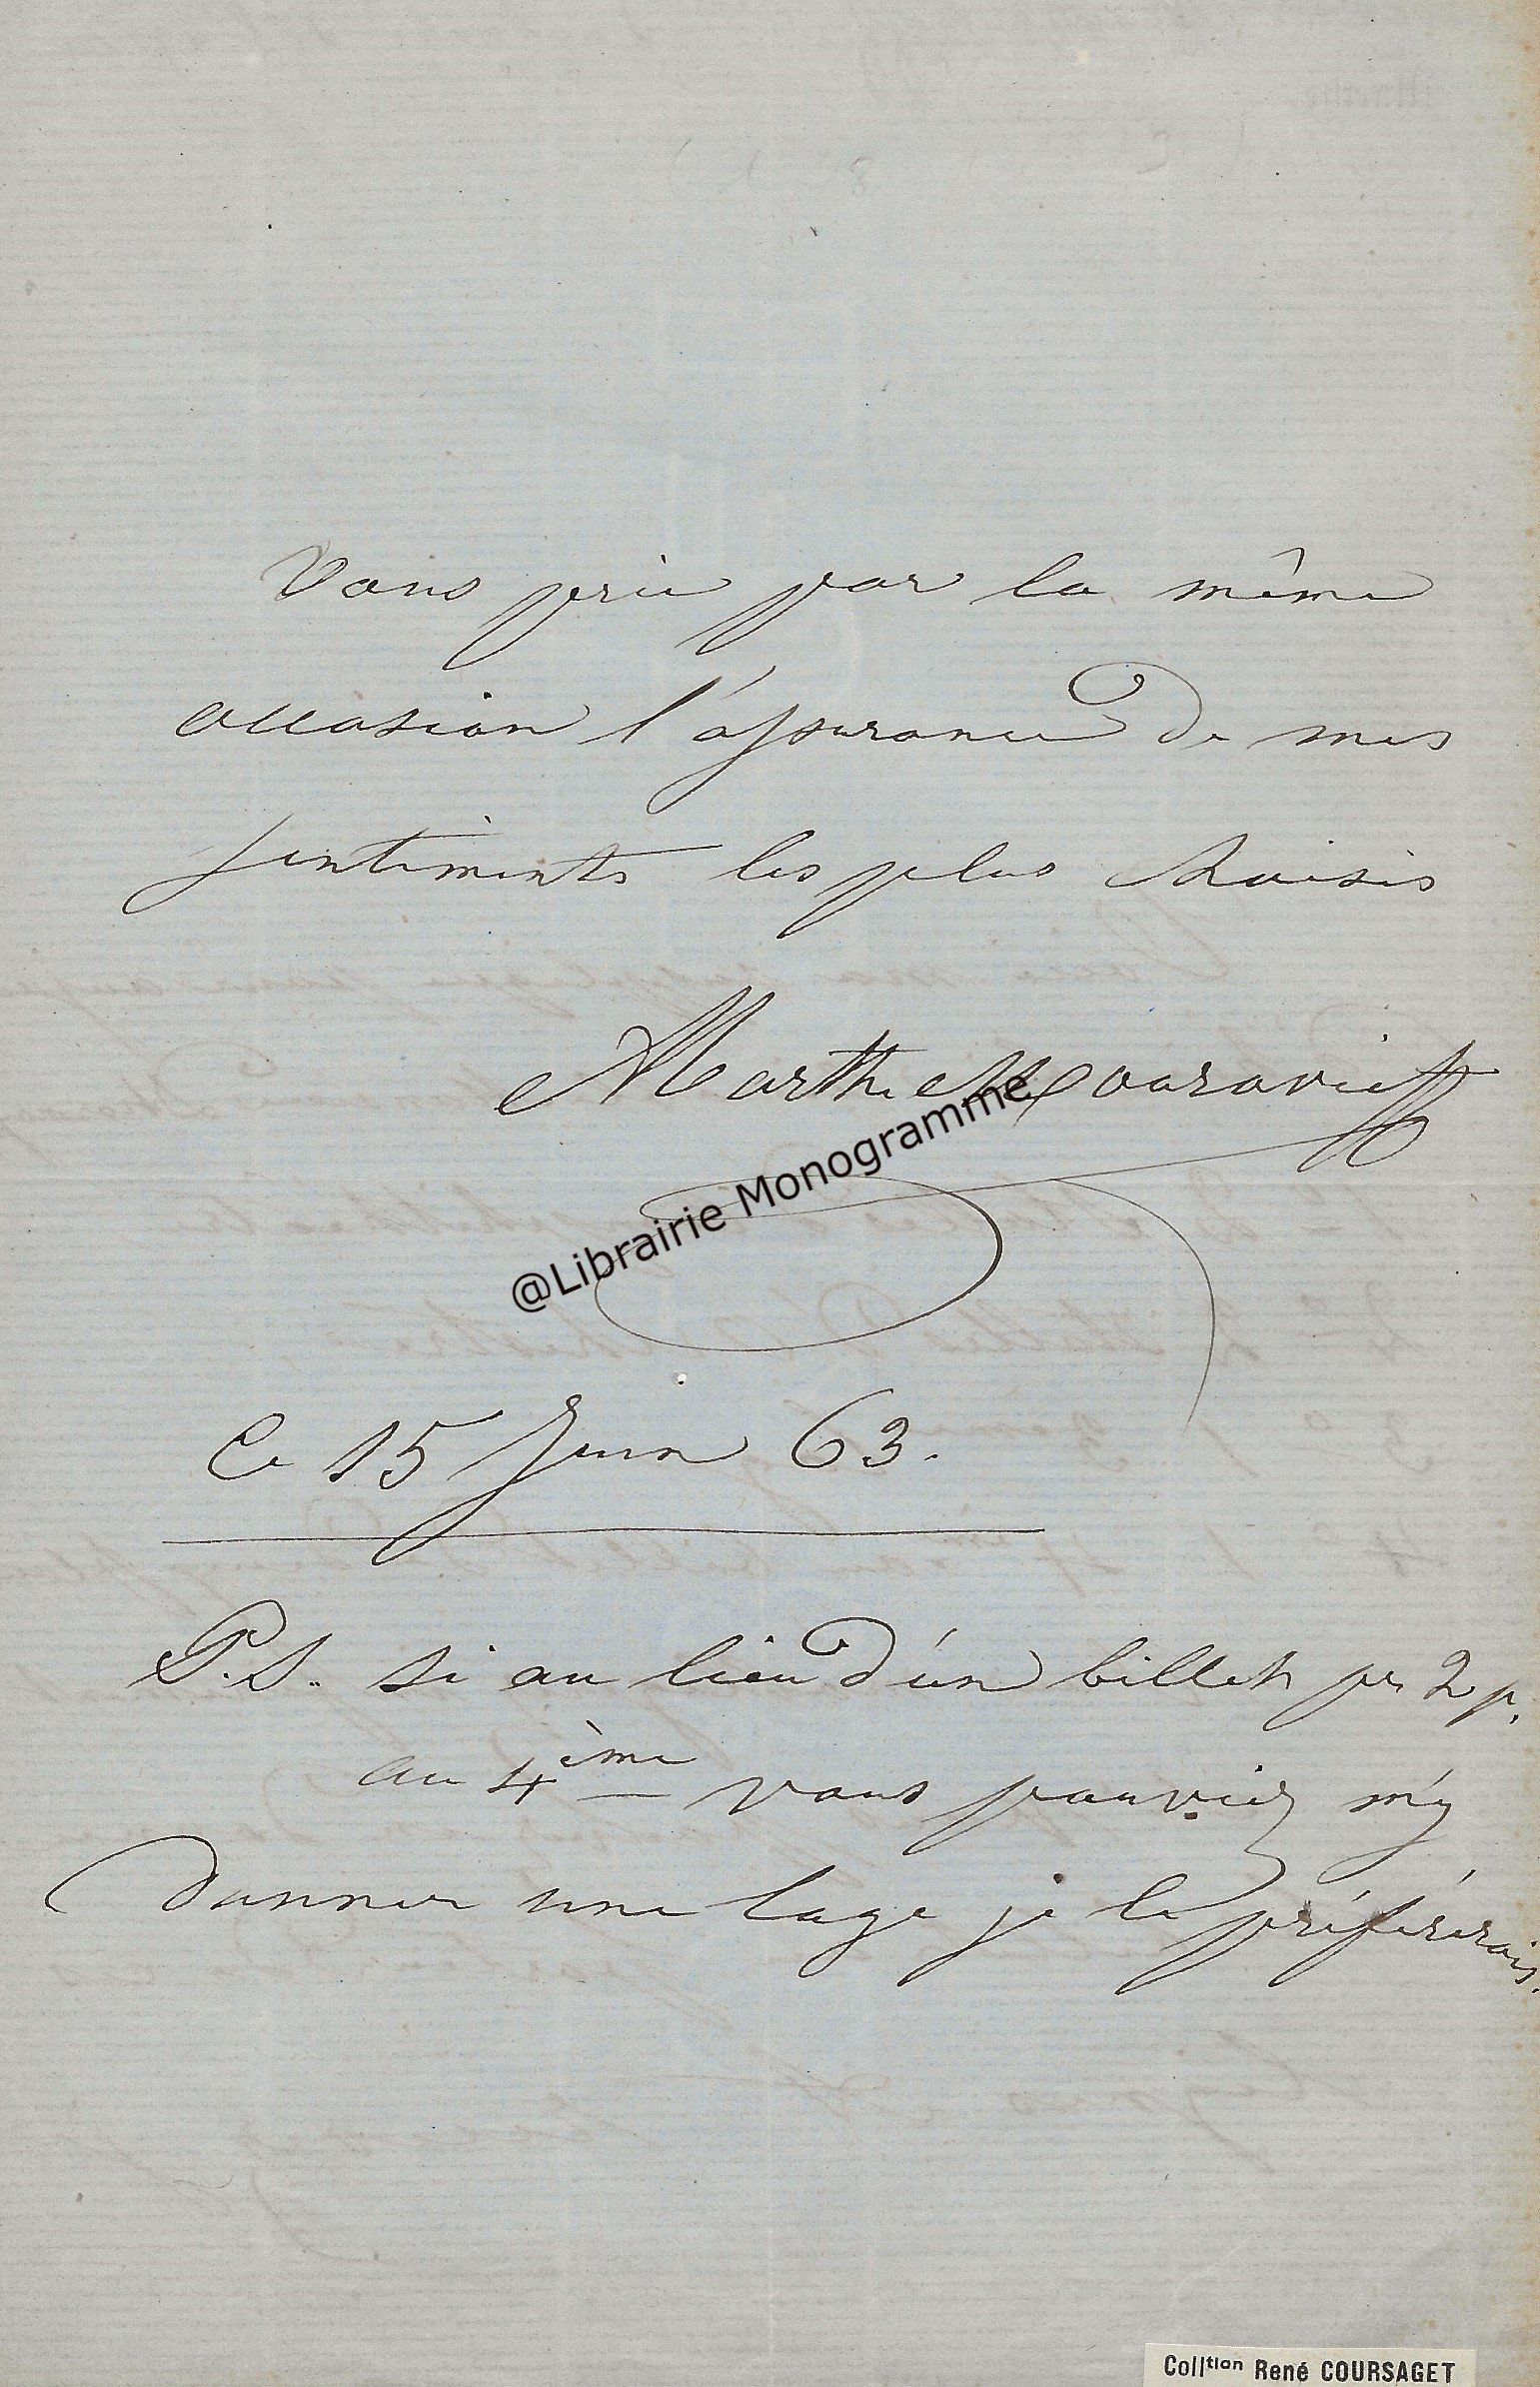 Vous prie par la même
occasion l'assurance de mes
sentiments les plus choisis
Marthe Mouravieff
@Librairie Monogramme
Ce 15 Juin 63.
P.S. si au lieu d'un billet pr 2 p.
au 4ème vous pouviez m'y
donner une loge je le préférerais.
Colltion René COURSAGET